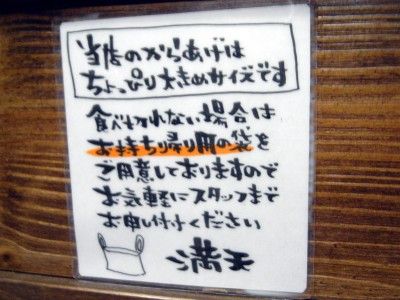 当店のからあげは
ちょっぴり大きめサイズです
食べ切れない場合は
お持ち帰り用の袋を
ご用意しておりますので
お気軽にスタッフまで
お申し付けください
満天